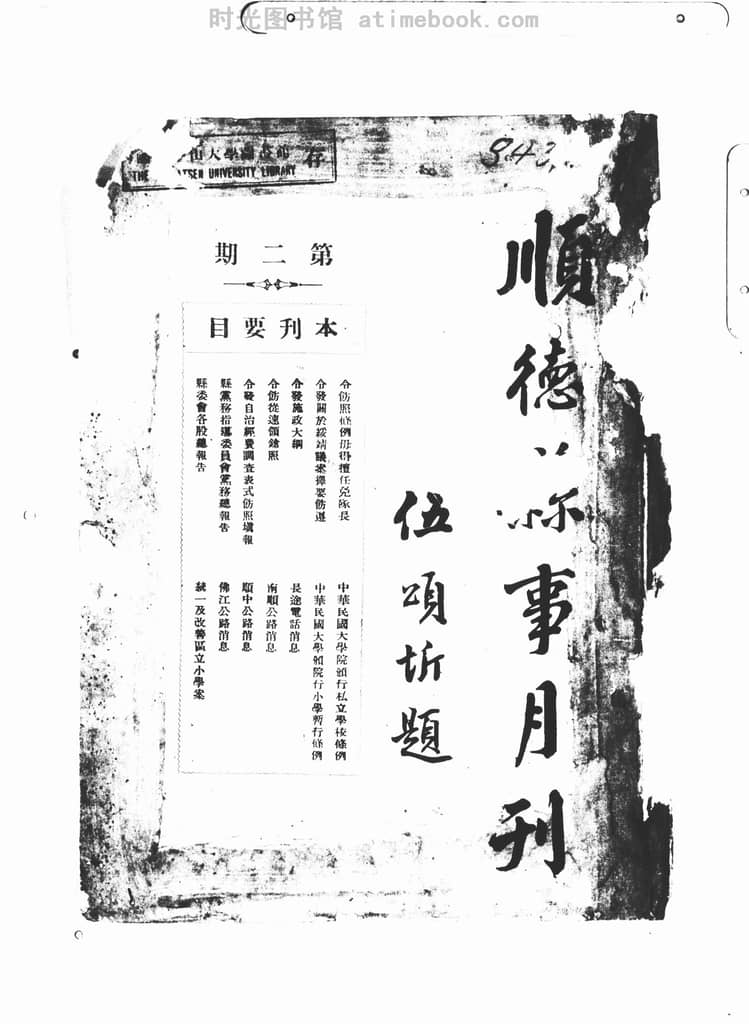 时光图书馆 atimebook.com
山大學圖書館 存
THE ATSEN UNIVERSITY LIBRARY
843
順德縣事月刊
伍頌圻題
第二期
本刊要目
令飭照條例毋得擅任免隊長
令發關於綏靖議案擇要飭遵
令發施政大綱
令飭從速領鎗照
令發自治經費調查表式飭照塡報
縣黨務指導委員會黨務總報告
縣委會各股總報告
中華民國大學院頒行私立學校條例
中華民國大學頒院行小學暫行條例
長途電話消息
南順公路消息
順中公路消息
佛江公路消息
統一及改善區立小學案